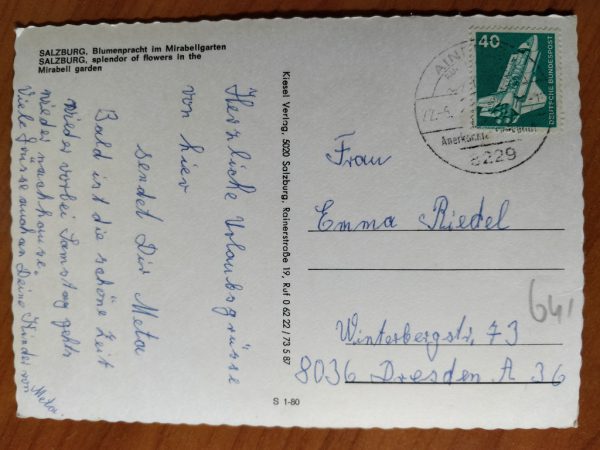 SALZBURG, Blumenpracht im Mirabellgarten
SALZBURG, splendor of flowers in the
Mirabell garden
Herzliche Urlaubsgrüsse
von hier
sendet Dir Meta
Bald ist die schöne Zeit
wieder vorbei Samstag gehts
wieder nachhause.
Viele Grüsse auch an Deine Kinder von Meta.
Kiesel Verlag, 5020 Salzburg, Rainerstraße 19, Ruf 0 62 22 / 73 5 87
S 1-80
40
DEUTSCHE BUNDESPOST
AIN
Anerkannt
8229
Frau
Emma Riedel
Winterbergstr. 73
8036 Dresden A 36
641